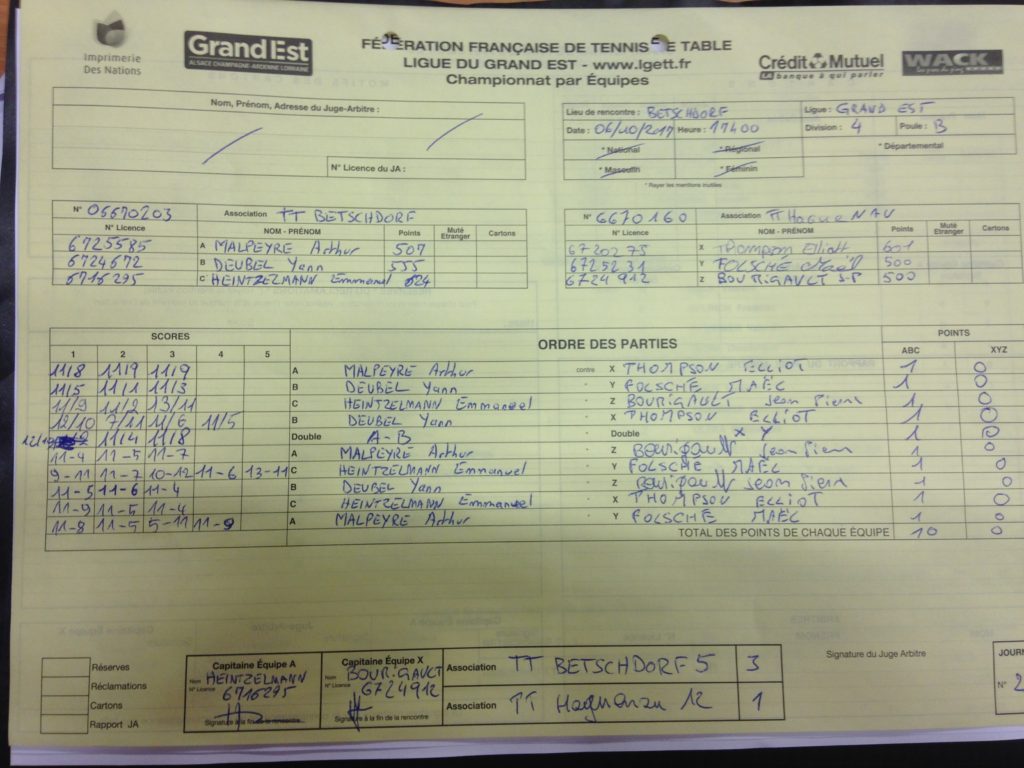 Imprimerie
Des Nations
Grand Est
ALSACE CHAMPAGNE-ARDENNE LORRAINE
FÉDÉRATION FRANÇAISE DE TENNIS DE TABLE
LIGUE DU GRAND EST - www.lgett.fr
Championnat par Équipes
Crédit Mutuel
LA banque à qui parler
WACK
Nom, Prénom, Adresse du Juge-Arbitre :
N° Licence du JA :
Lieu de rencontre : BETSCHDORF Ligue : GRAND EST
Date : 06/10/2017 Heure : 17H00 Division : 4 Poule : B
* National * Régional * Départemental
* Masculin * Féminin
* Rayer les mentions inutiles
N° 05670203 Association TT BETSCHDORF
N° Licence NOM - PRÉNOM Points Muté Etranger Cartons
6725585 A MALPEYRE Arthur 507
6724672 B DEUBEL Yann 555
6716295 C HEINTZELMANN Emmanuel 624
N° 6670160 Association TT HagueNAU
N° Licence NOM - PRÉNOM Points Muté Etranger Cartons
6720275 X Thompson Elliott 601
6725231 Y FOLSCHÉ Maël 500
6724912 Z BOURIGAULT J-P 500
SCORES ORDRE DES PARTIES POINTS
1 2 3 4 5 ABC XYZ
11/8 11/9 11/9 A MALPEYRE Arthur contre X THOMPSON ELLIOT 1 0
11/5 11/1 11/3 B DEUBEL Yann " Y FOLSCHÉ MAËL 1 0
11/9 11/2 13/11 C HEINTZELMANN Emmanuel " Z BOURIGAULT Jean Pierre 1 0
12/10 7/11 11/6 11/5 B DEUBEL Yann " X THOMPSON ELLIOT 1 0
12/10 11/4 11/8 Double A-B " Double X Y 1 0
11-4 11-5 11-7 A MALPEYRE Arthur " Z Bourigault Jean Pierre 1 0
9-11 11-7 10-12 11-6 13-11 C HEINTZELMANN Emmanuel " Y FOLSCHÉ MAËL 1 0
11-5 11-6 11-4 B DEUBEL Yann " Z Bourigault Jean Pierre 1 0
11-9 11-5 11-4 C HEINTZELMANN Emmanuel " X THOMPSON ELLIOT 1 0
11-8 11-5 5-11 11-9 A MALPEYRE Arthur " Y FOLSCHÉ MAËL 1 0
TOTAL DES POINTS DE CHAQUE ÉQUIPE 10 0
Réserves
Réclamations
Cartons
Rapport JA
Capitaine Équipe A
Nom HEINTZELMANN
N° Licence 6716295
Signature à la fin de la rencontre
Capitaine Équipe X
Nom BOURIGAULT
N° Licence 6724912
Signature à la fin de la rencontre
Association TT BETSCHDORF 5 3
Association TT Haguenau 12 1
Signature du Juge Arbitre
JOURN
N° 2